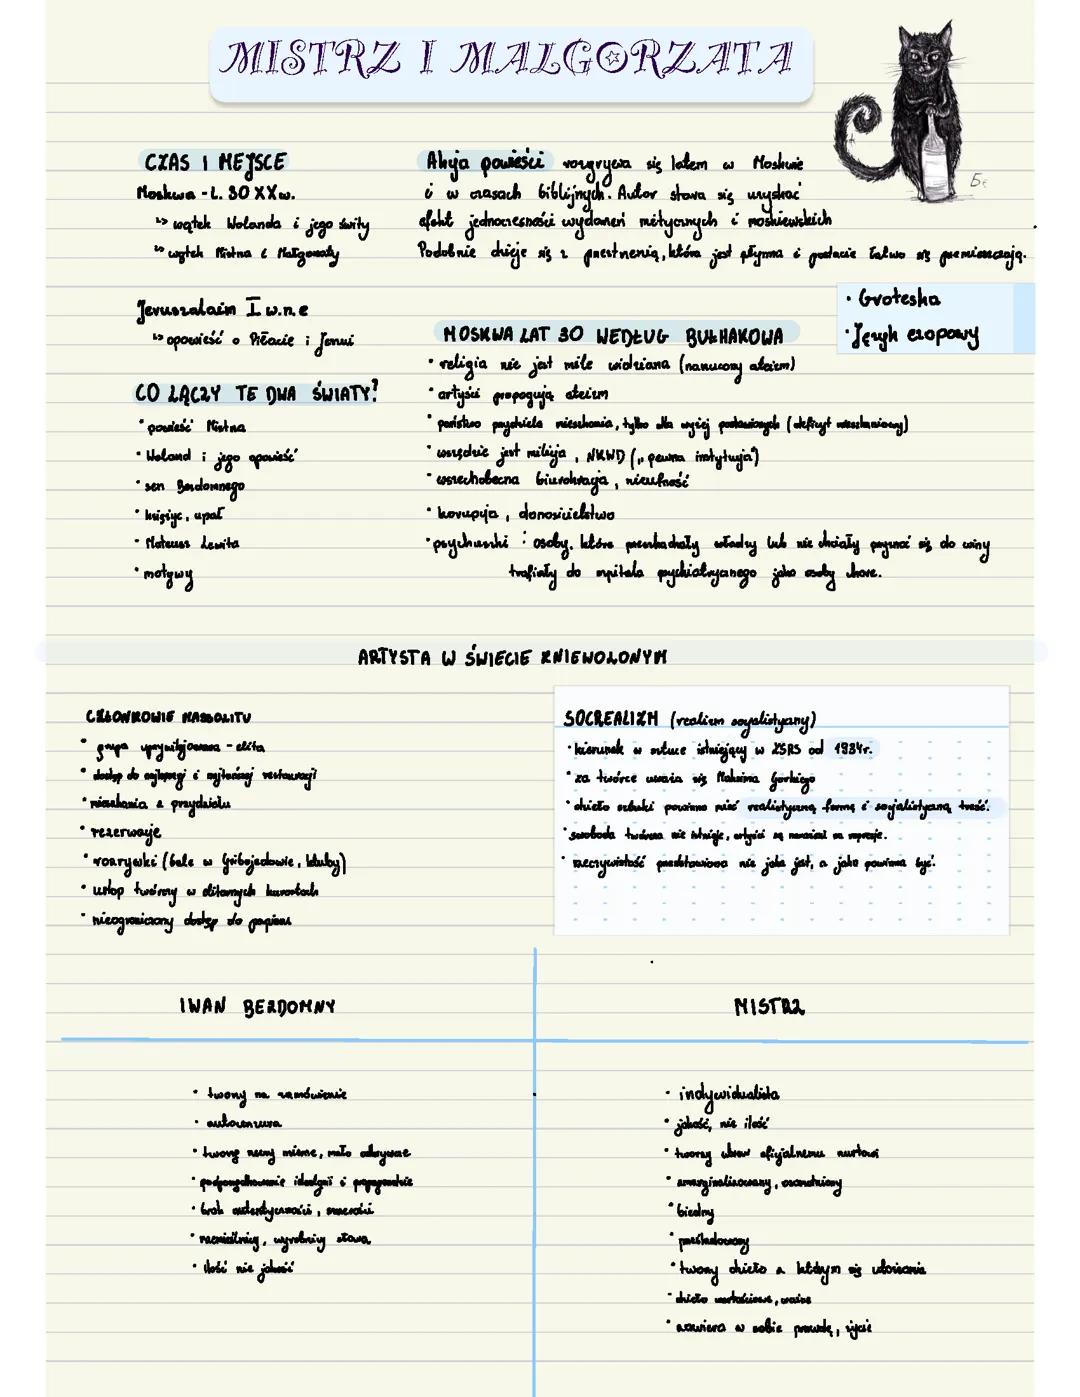 MISTRZ I MALGORZATA
CZAS I MEJSCE
Moskwa - L. 30 XX w.
↳ wątek Wolanda i jego świty
↳ wątek Mistrza i Małgorzaty
Jeruszalaim I w.n.e
↳ opowieść o Piłacie i Jeszui
CO ŁĄCZY TE DWA ŚWIATY?
• powieść Mistrza
• Woland i jego opowieść
• sen Bezdomnego
• księżyc, upał
• Mateusz Lewita
• motywy
Akcja powieści rozgrywa się latem w Moskwie
i w czasach biblijnych. Autor stara się uzyskać
efekt jednoczesności wydarzeń mitycznych i moskiewskich
Podobnie dzieje się z przestrzenią, która jest płynna i postacie łatwo się przemieszczają.
• Groteska
• Język ezopowy
MOSKWA LAT 30 WEDŁUG BUŁHAKOWA
• religia nie jest mile widziana (narzucony ateizm)
• artyści propagują ateizm
• państwo przydziela mieszkania, tylko dla wyżej postawionych (deficyt mieszkaniowy)
• wszędzie jest milicja, NKWD („pewna instytucja")
• wszechobecna biurokracja, nieufność
• korupcja, donosicielstwo
• psychuszki : osoby, które przeszkadzały władzy lub nie chciały przyznać się do winy
trafiały do szpitala psychiatrycznego jako osoby chore.
ARTYSTA W ŚWIECIE ZNIEWOLONYM
CZŁONKOWIE MASSOLITU
• grupa uprzywilejowana - elita
• dostęp do najlepszej i najtańszej restauracji
• mieszkania z przydziału
• rezerwacje
• rozrywki (bale w Gribojedowie, kluby)
• urlop twórczy w elitarnych kurortach
• nieograniczony dostęp do papieru
SOCREALIZM (realizm socjalistyczny)
• kierunek w sztuce istniejący w ZSRS od 1934r.
• za twórcę uważa się Maksima Gorkiego
• dzieło sztuki powinno mieć realistyczną formę i socjalistyczną treść.
• swoboda twórcza nie istnieje, artyści są narażeni na represje.
• rzeczywistość przedstawiona nie jaka jest, a jaka powinna być.
IWAN BEZDOMNY
• tworzy na zamówienie
• autocenzura
• tworzy rzeczy mierne, mało odkrywcze
• podporządkowanie ideologii i propagandzie
• brak autentyczności, szczerości
• rzemieślnicy, wyrobnicy słowa
• ilość nie jakość
MISTRZ
• indywidualista
• jakość, nie ilość
• tworzy wbrew oficjalnemu nurtowi
• zmarginalizowany, osamotniony
• biedny
• prześladowany
• tworzy dzieło z którym się utożsamia
• dzieło wartościowe, ważne
• zawiera w sobie prawdę, życie